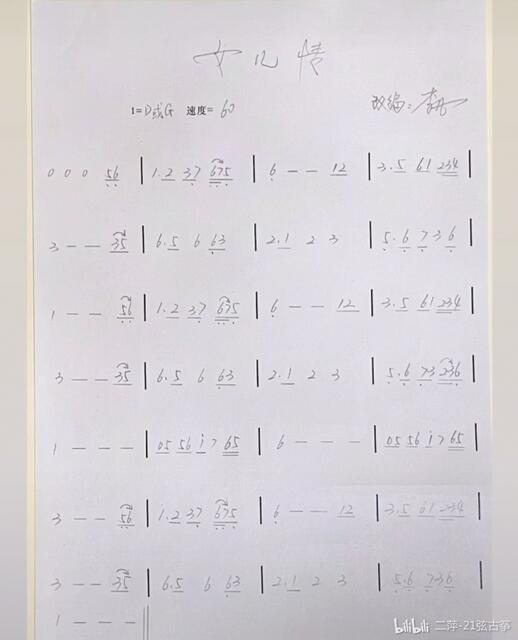 女儿情
1=D或G 速度=60 改编:
0 0 0 56 | 1.2 37 675 | 6 — — 12 | 3.5 61 234 |
3 — — 35 | 6.5 6 63 | 2.1 2 3 | 5.6 7 3 6 |
1 — — 56 | 1.2 37 675 | 6 — — 12 | 3.5 61 234 |
3 — — 35 | 6.5 6 63 | 2.1 2 3 | 5.6 73 236 |
1 — — — | 05 56 i 7 65 | 6 — — — | 05 56 i 7 65 |
3 — — 56 | 1.2 37 675 | 6 — — 12 | 3.5 61 234 |
3 — — 35 | 6.5 6 63 | 2.1 2 3 | 5.6 736 |
1 — — — ||
bilibili 二萍-21弦古筝